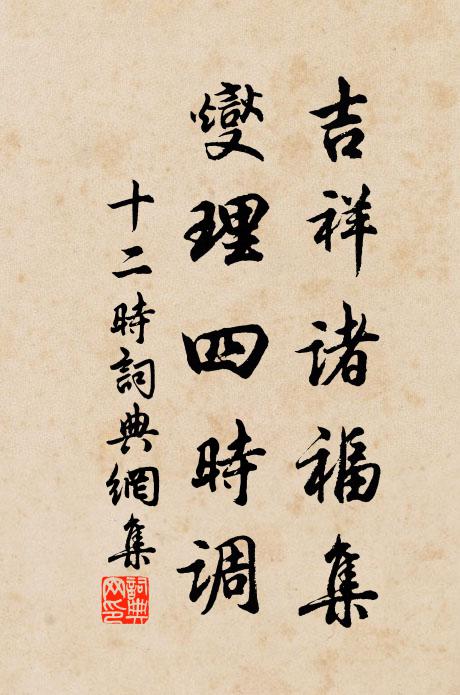 吉祥諸福集
燮理四時調
十二時詞典網集
詞典網印